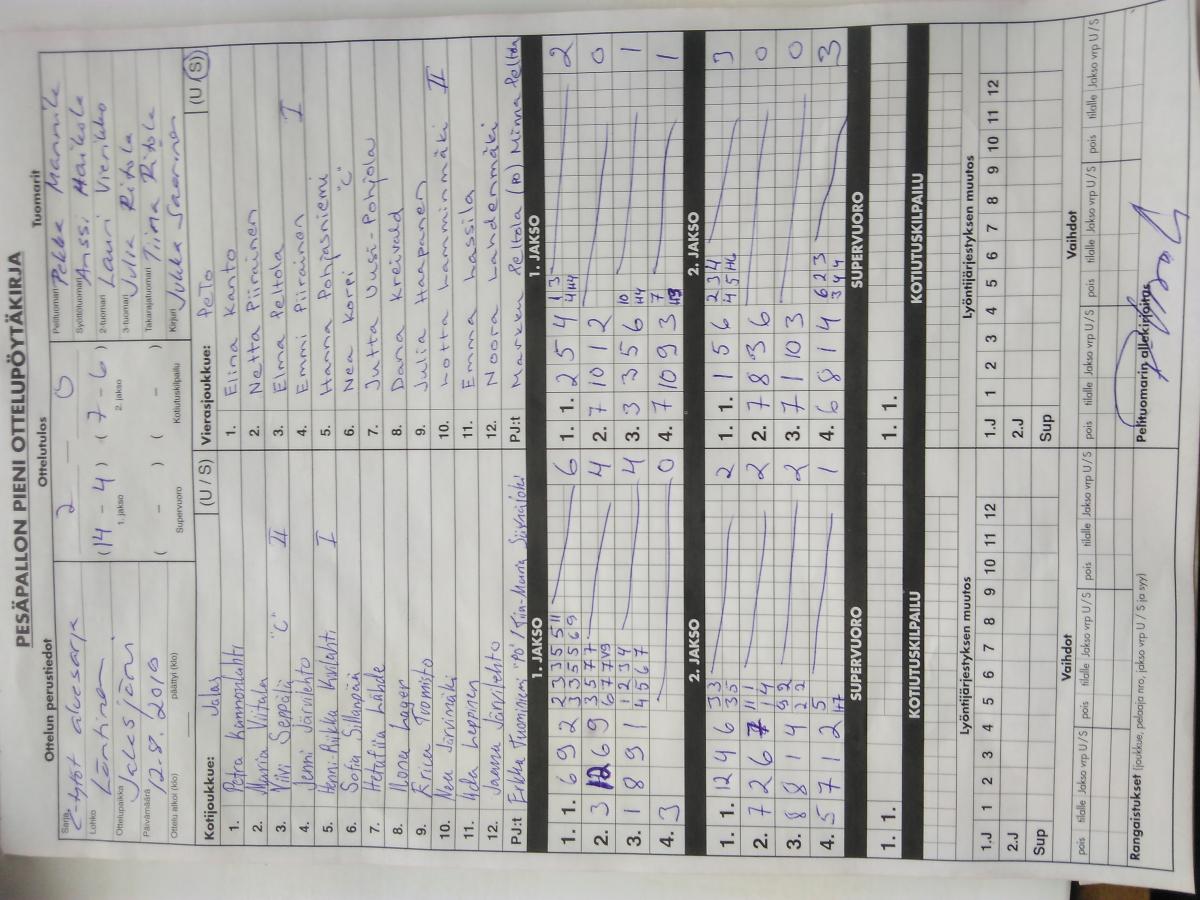 PESÄPALLON PIENI OTTELUPÖYTÄKIRJA
Ottelun perustiedot
Ottelutulos
Tuomarit
Sarja
C-tytöt aluesarja
Lohko
Läntinen
Ottelupaikka
Jalasjärvi
Päivämäärä
12.8.2010
Ottelu alkoi (klo)
päättyi (klo)
2 — 0
(14 - 4) (7 - 6)
1. jakso
2. jakso
( - ) ( - )
Supervuoro
Kotiutuskilpailu
Pelituomari Pekka Mannila
Syöttötuomari Anssi Haikola
2-tuomari Lauri Vierikko
3-tuomari Julia Ritola
Takarajatuomari Tiina Ritola
Kirjuri Jukka Saarinen
Kotijoukkue: Jalas (U / S)
1. Petra Kannonlahti
2. Maria Viitala
3. Viivi Seppälä "C" II
4. Jenni Järvilehto
5. Henni-Riikka Kivilehti I
6. Sofia Sillanpää
7. Hetafiia Lähde
8. Noona Lager
9. Erica Tuomisto
10. Nea Järimäki
11. Leppinen
12. Jaana Järvilehto
PJ:t Erkka Tuominiemi "PJ" / Tiia-Maria
Vierasjoukkue: PeTo (U / S)
1. Elina Kanto
2. Netta Piirainen
3. Elna Peltola
4. Emmi Piirainen I
5. Hanna Pohjasniemi
6. Nea Korpi "C"
7. Jutta Uusi-Pohjola
8. Dana Kreivald
9. Julia Haapanen
10. Lotta Lamminmäki II
11. Emma Lassila
12. Noora Lahdenmäki
PJ:t Markku Peltola (PJ) Minna Peltola
1. JAKSO
1. 1. 6 9 2 2 3 3 5 5 11 3 3 5 5 6 9 6
2. 3 12 6 9 3 5 7 7 6 7 7 V9 4
3. 1 8 9 1 1 2 3 4 4 5 6 7 4
4. 3 0
1. JAKSO
1. 1. 2 5 4 1 3 4 H4 2
2. 7 10 1 2 0
3. 3 5 6 10 H4 1
4. 7 10 9 3 7 1
2. JAKSO
1. 1. 12 4 6 3 3 3 5 2
2. 7 2 6 7 11 11 1 4 2
3. 8 8 1 4 9 2 2 2 2
4. 5 7 1 2 5 1
2. JAKSO
1. 1. 1 5 6 2 3 4 4 5 H6 3
2. 7 8 3 6 0
3. 7 1 10 3 0
4. 6 8 1 4 6 2 3 3 4 4 3
SUPERVUORO
1. 1.
SUPERVUORO
1. 1.
KOTIUTUSKILPAILU
KOTIUTUSKILPAILU
Lyöntijärjestyksen muutos
1.J 1 2 3 4 5 6 7 8 9 10 11 12
2.J
Sup
Lyöntijärjestyksen muutos
1.J 1 2 3 4 5 6 7 8 9 10 11 12
2.J
Sup
Vaihdot
pois tilalle Jakso vrp U / S pois tilalle Jakso vrp U / S pois tilalle Jakso vrp U / S
Vaihdot
pois tilalle Jakso vrp U / S pois tilalle Jakso vrp U / S pois tilalle Jakso vrp U / S
Rangaistukset (joukkue, pelaaja nro, jakso vrp U / S ja syy)
Pelituomarin allekirjoitus